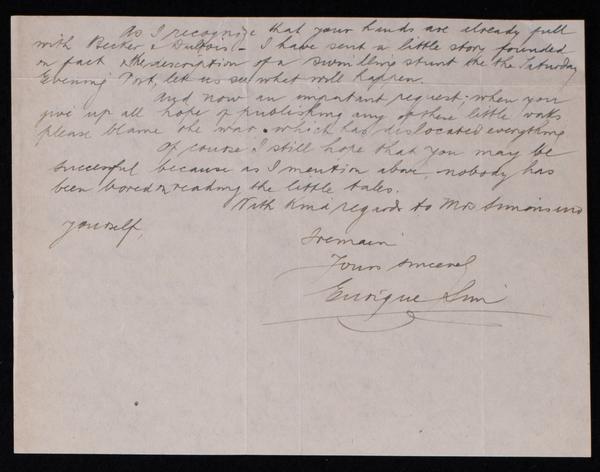 As I recognize that your hands are already full
with Becker & Dubois - I have sent a little story founded
on fact & the description of a swimming stunt the the Saturday
Evening Post, let us see what will happen.
And now an important request; when you
give up all hope of publishing any of these little works
please blame the war which has dislocated everything
Of course I still hope that you may be
successful because as I mention above, nobody has
been bored in reading the little tales.
With Kind regards to Mrs Simons and
yourself,
I remain
Yours sincerely
Enrique